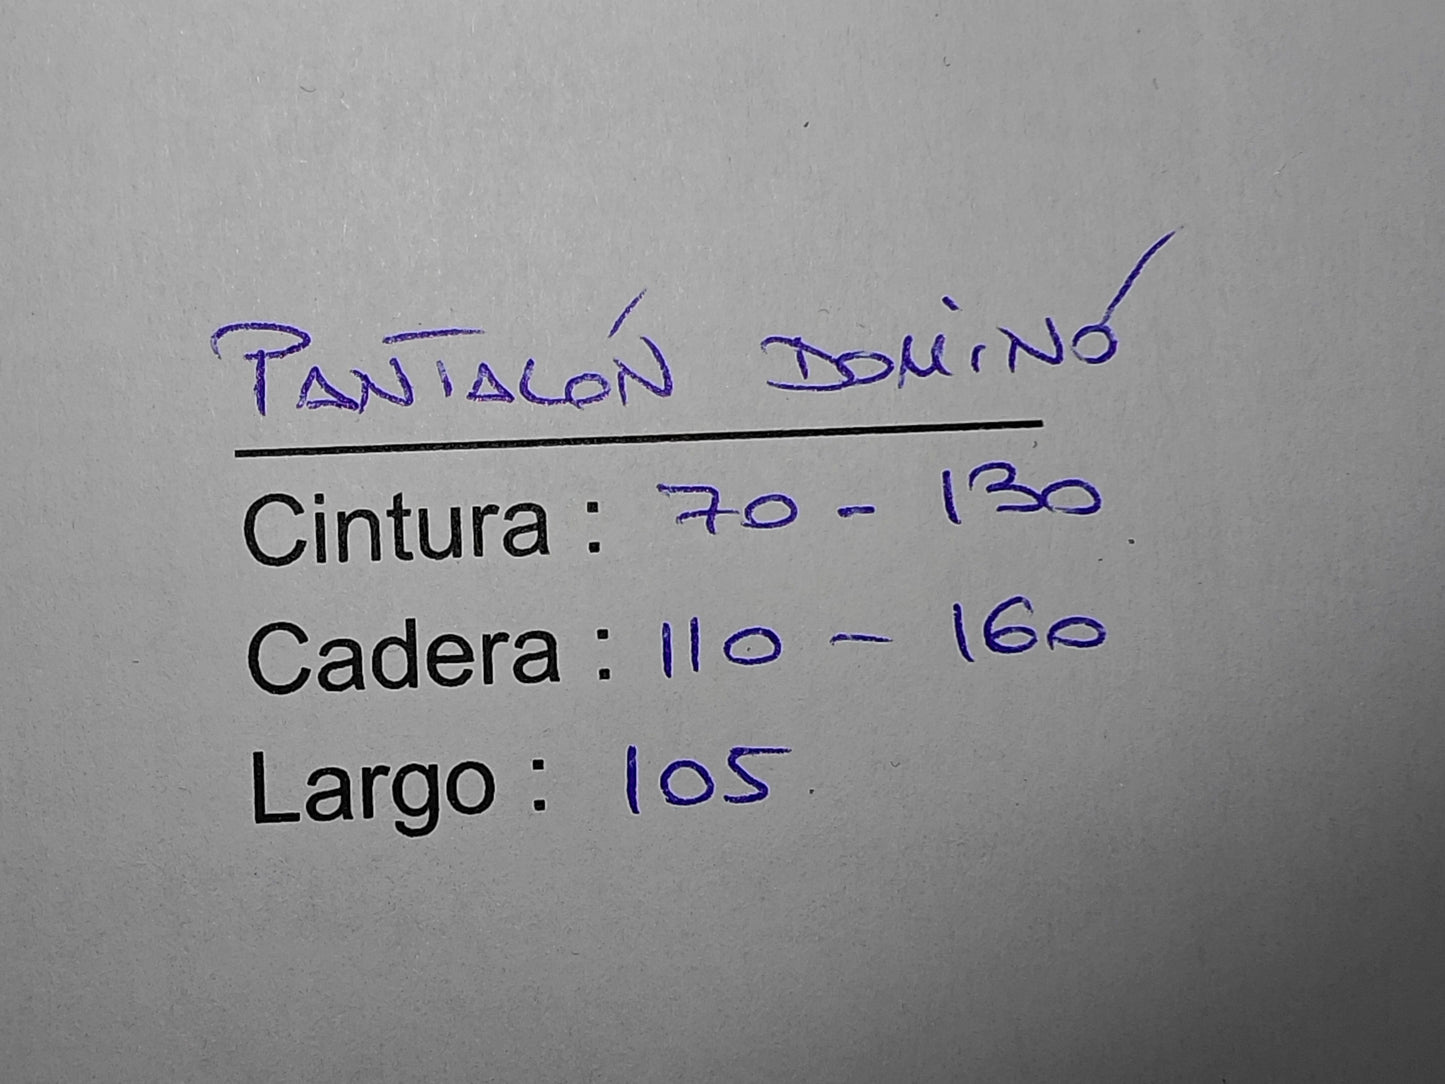 PANTALÓN DOMINÓ
Cintura : 70 - 130
Cadera : 110 - 160
Largo : 105